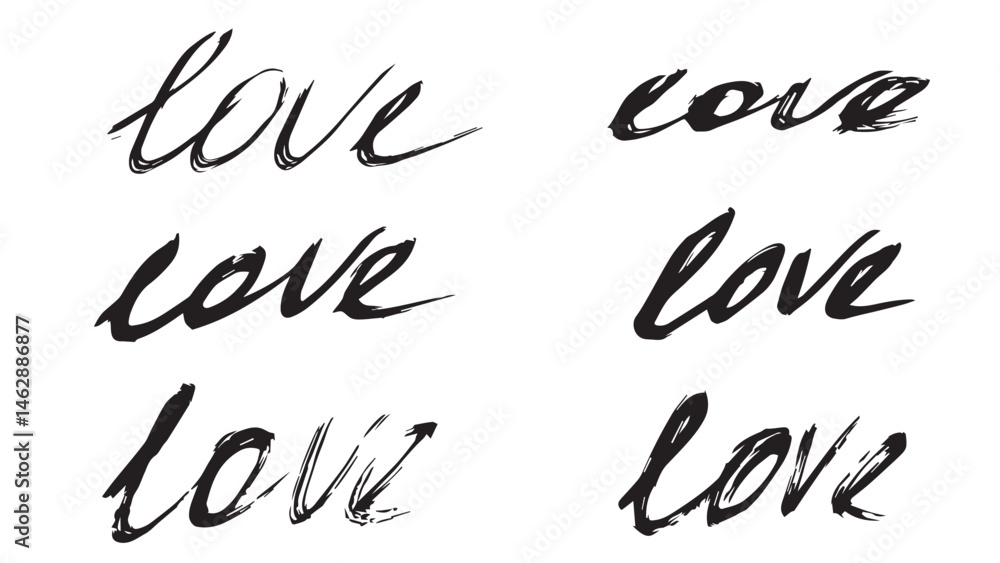 love love
love love
love love
Adobe Stock | #1462886877